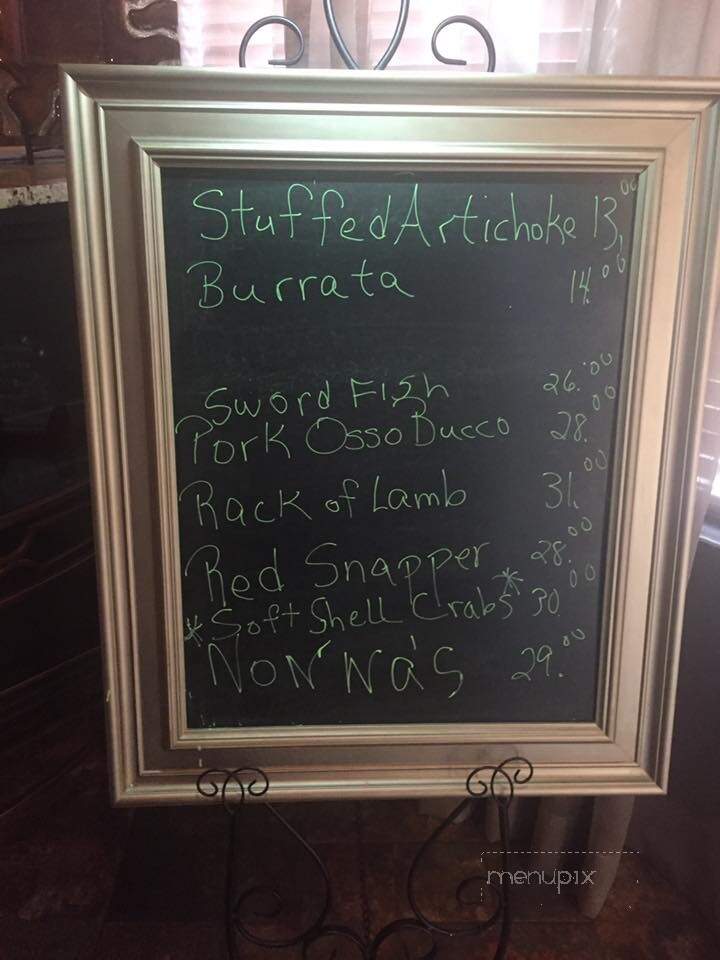 Stuffed Artichoke 13.00
Burrata 14.00
Sword Fish 26.00
Pork Osso Bucco 28.00
Rack of Lamb 31.00
Red Snapper 28.00
*Soft Shell Crabs* 30.00
NoN'Na's 29.00
menupix